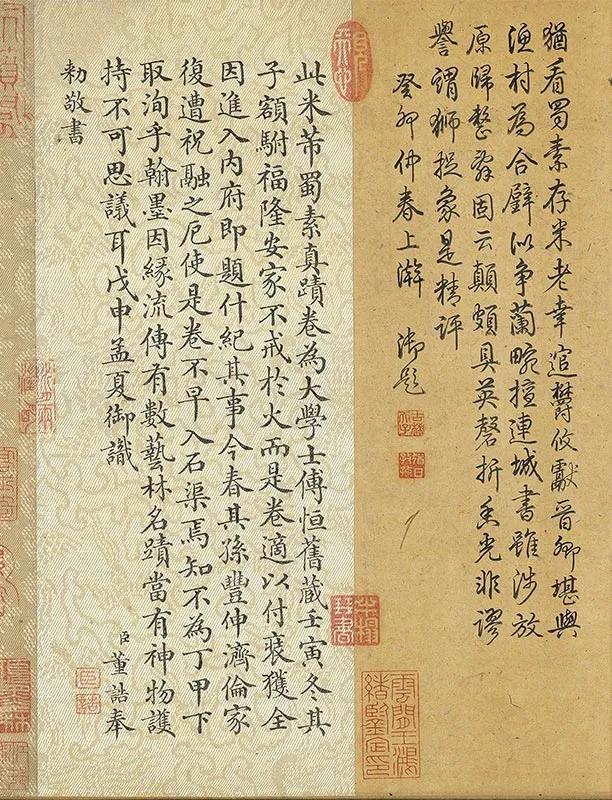 猶看蜀素存米老幸逭欝攸獻晉卿堪與
漁村為合璧似爭蘭畹擅連城書雖涉放
原歸整固云顛頗具英磬折香光非謬
譽謂獅捉象是精評
癸卯仲春上澣 御題
古稀天子
猶日孜孜
雲間王鴻緒鑒定印
半榻琴書
此米芾蜀素真蹟卷為大學士傅恒舊藏壬寅冬其
子額駙福隆安家不戒於火而是卷適以付裝獲全
因進入內府即題什紀其事今春其孫豐伸濟倫家
復遭祝融之厄使是卷不早入石渠焉知不為丁甲下
取洵乎翰墨因緣流傳有數藝林名蹟當有神物護
持不可思議耳戊申孟夏御識
臣董誥奉
敕敬書
臣誥